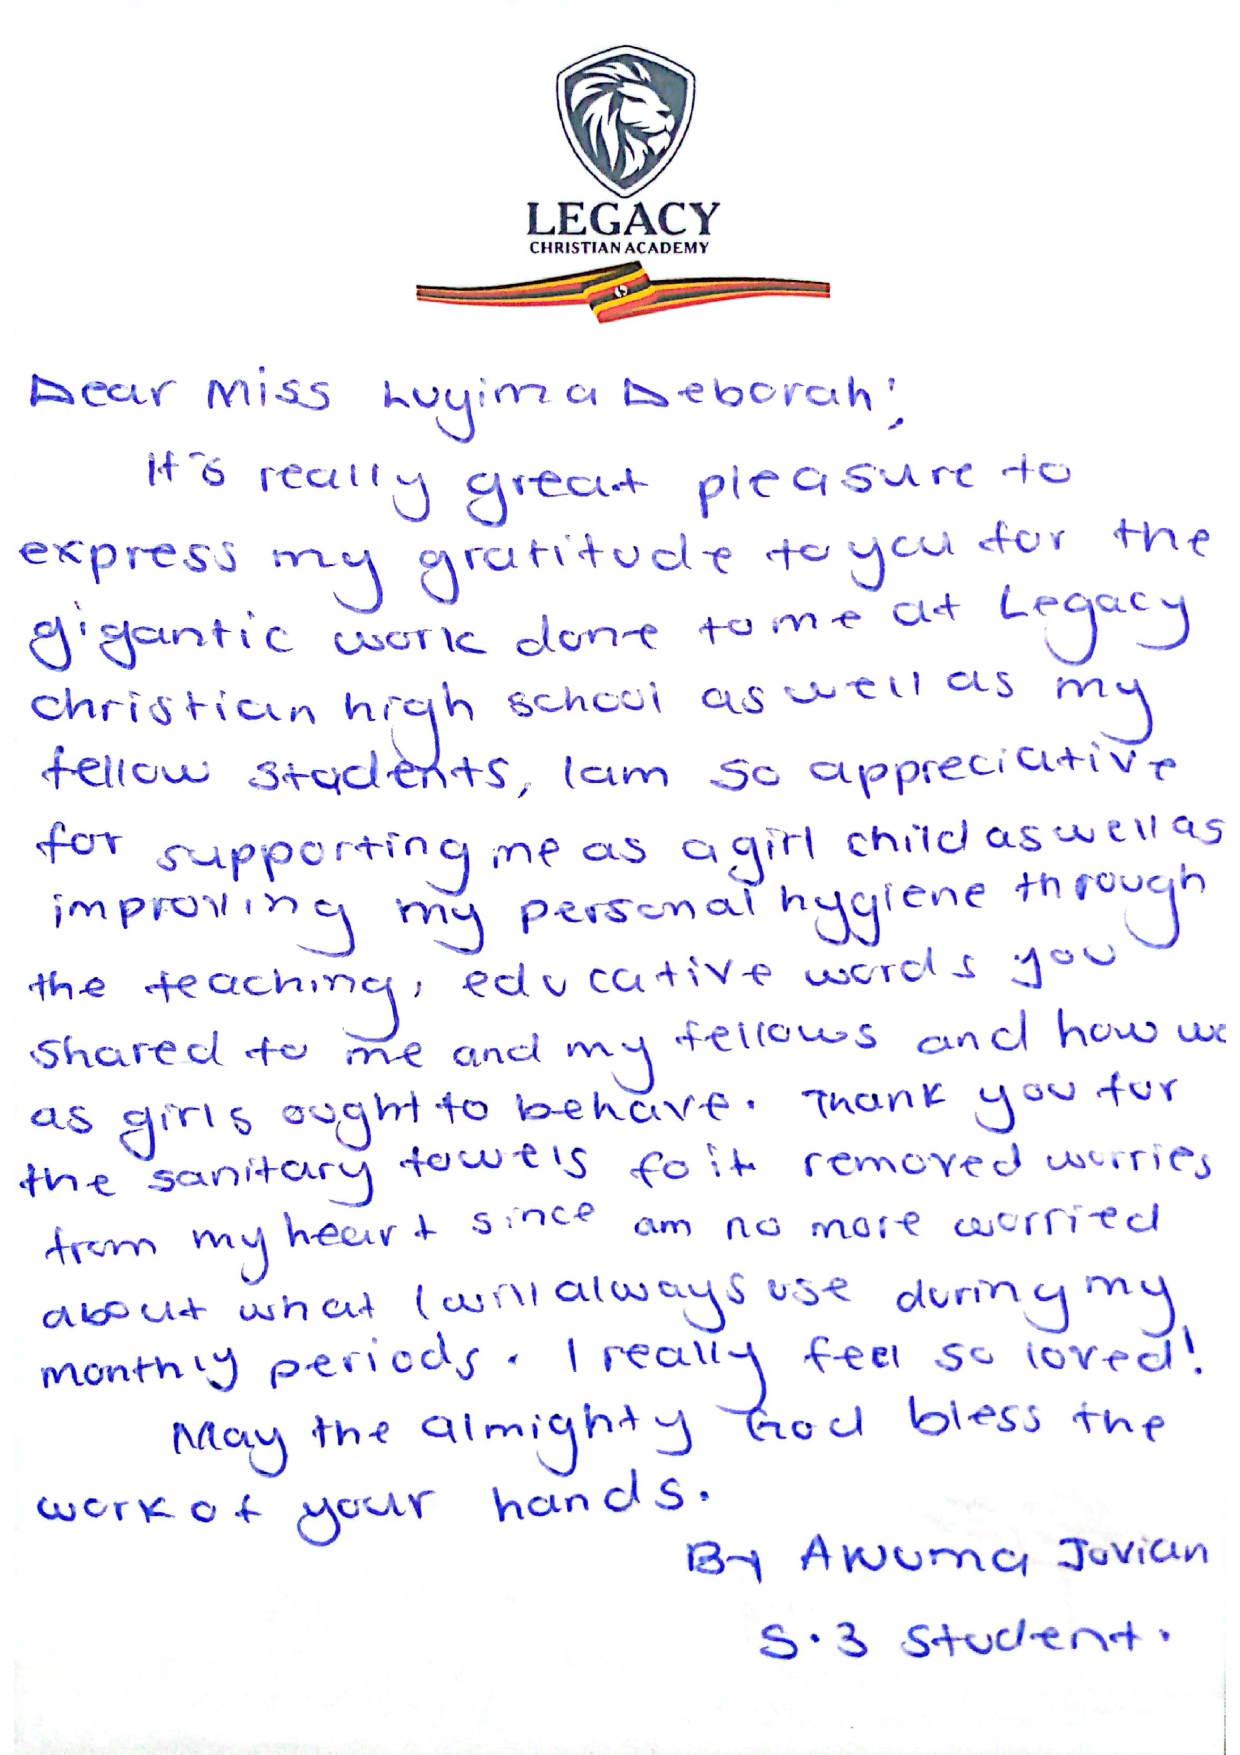 LEGACY
CHRISTIAN ACADEMY
Dear Miss Luyima Deborah;
It's really great pleasure to
express my gratitude to you for the
gigantic work done to me at Legacy
christian high school as well as my
fellow students, I am so appreciative
for supporting me as a girl child as well as
improving my personal hygiene through
the teaching, educative words you
shared to me and my fellows and how we
as girls ought to behave. Thank you for
the sanitary towels fo it removed worries
from my heart since am no more worried
about what I will always use during my
monthly periods. I really feel so loved!
May the almighty God bless the
work of your hands.
By Awuma Jovian
S.3 student.